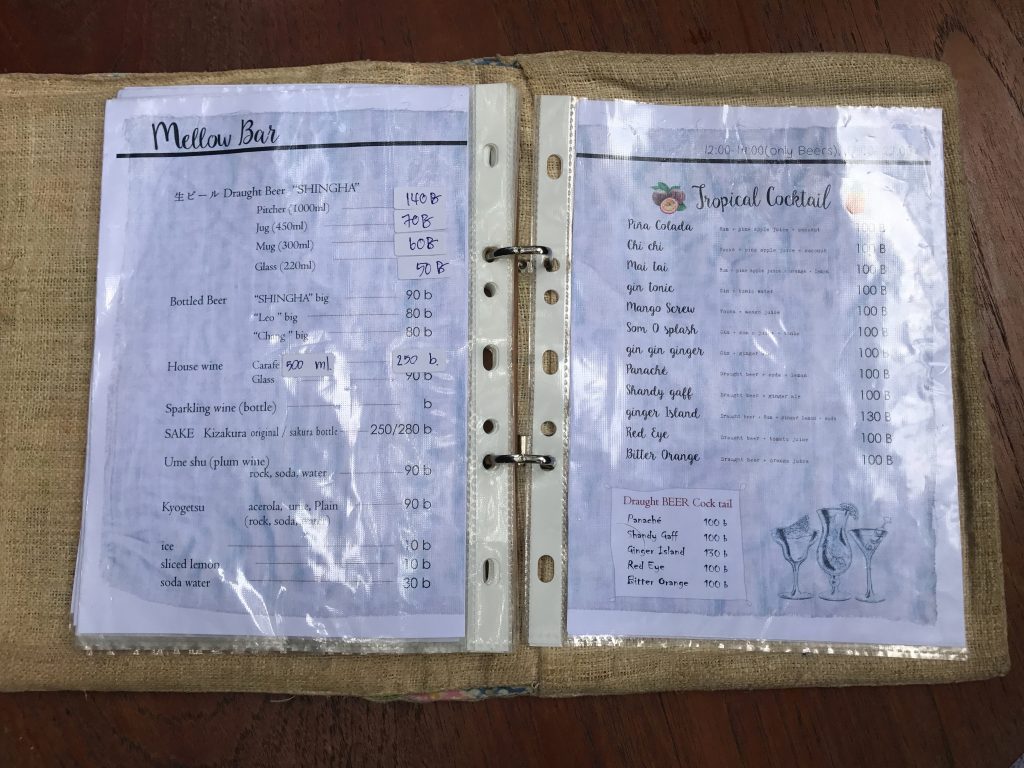 Mellow Bar
生ビール Draught Beer "SHINGHA"
Pitcher (1000ml) 140B
Jug (450ml) 70B
Mug (300ml) 60B
Glass (220ml) 50B
Bottled Beer "SHINGHA" big 90 b
"Leo" big 80 b
"Chang" big 80 b
House wine Carafe 500 ml. 250 b.
Glass 90 b
Sparkling wine (bottle) b
SAKE Kizakura original / sakura bottle 250/280 b
Ume shu (plum wine)
rock, soda, water 90 b
Kyogetsu acerola, ume, Plain 90 b
(rock, soda,
ice 10 b
sliced lemon 10 b
soda water 30 b
12:00-14:00(only Beers)
Tropical Cocktail
Piña Colada Rum + pine apple juice + coconut 100 B
Chi chi Vodka + pine apple juice + coconut 100 B
Mai tai Rum + pine apple juice + orange + lemon 100 B
gin tonic Gin + tonic water 100 B
Mango Screw Vodka + mango juice 100 B
Som O splash Gin + som o juice + tonic 100 B
gin gin ginger Gin + ginger ale 100 B
Panaché Draught beer + soda + lemon 100 B
Shandy gaff Draught beer + ginger ale 100 B
ginger Island Draught beer + Rum + ginger lemon + soda 130 B
Red Eye Draught beer + tomato juice 100 B
Bitter Orange Draught beer + orange juice 100 B
Draught BEER Cock tail
Panaché 100 b
Shandy Gaff 100 b
Ginger Island 130 b
Red Eye 100 b
Bitter Orange 100 b